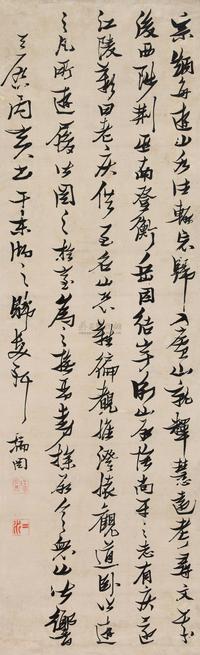 宗炳每遊山水往輒忘歸入廬山就釋慧遠考尋文義
後西陟荆巫南登衡岳因結宇衡山懷尚平之志有疾還
江陵歎曰老疾俱至名山恐難徧覩惟澄懷觀道卧以遊
之凡所遊履皆圖之於室謂之撫琴動操欲令衆山皆響
于東之軒